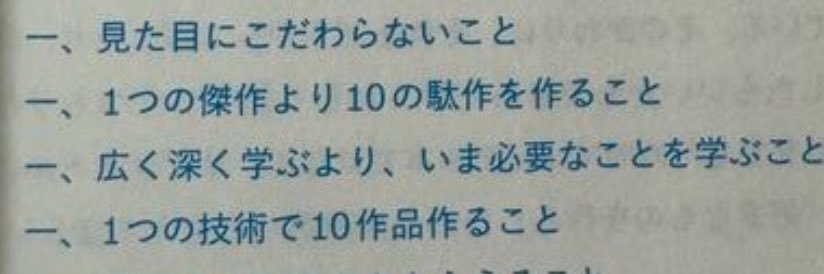 一、見た目にこだわらないこと
一、1つの傑作より10の駄作を作ること
一、広く深く学ぶより、いま必要なことを学ぶこと
一、1つの技術で10作品作ること